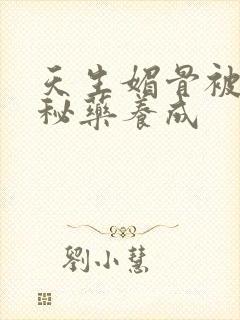 天生媚骨被
秘藥養成
劉小慧